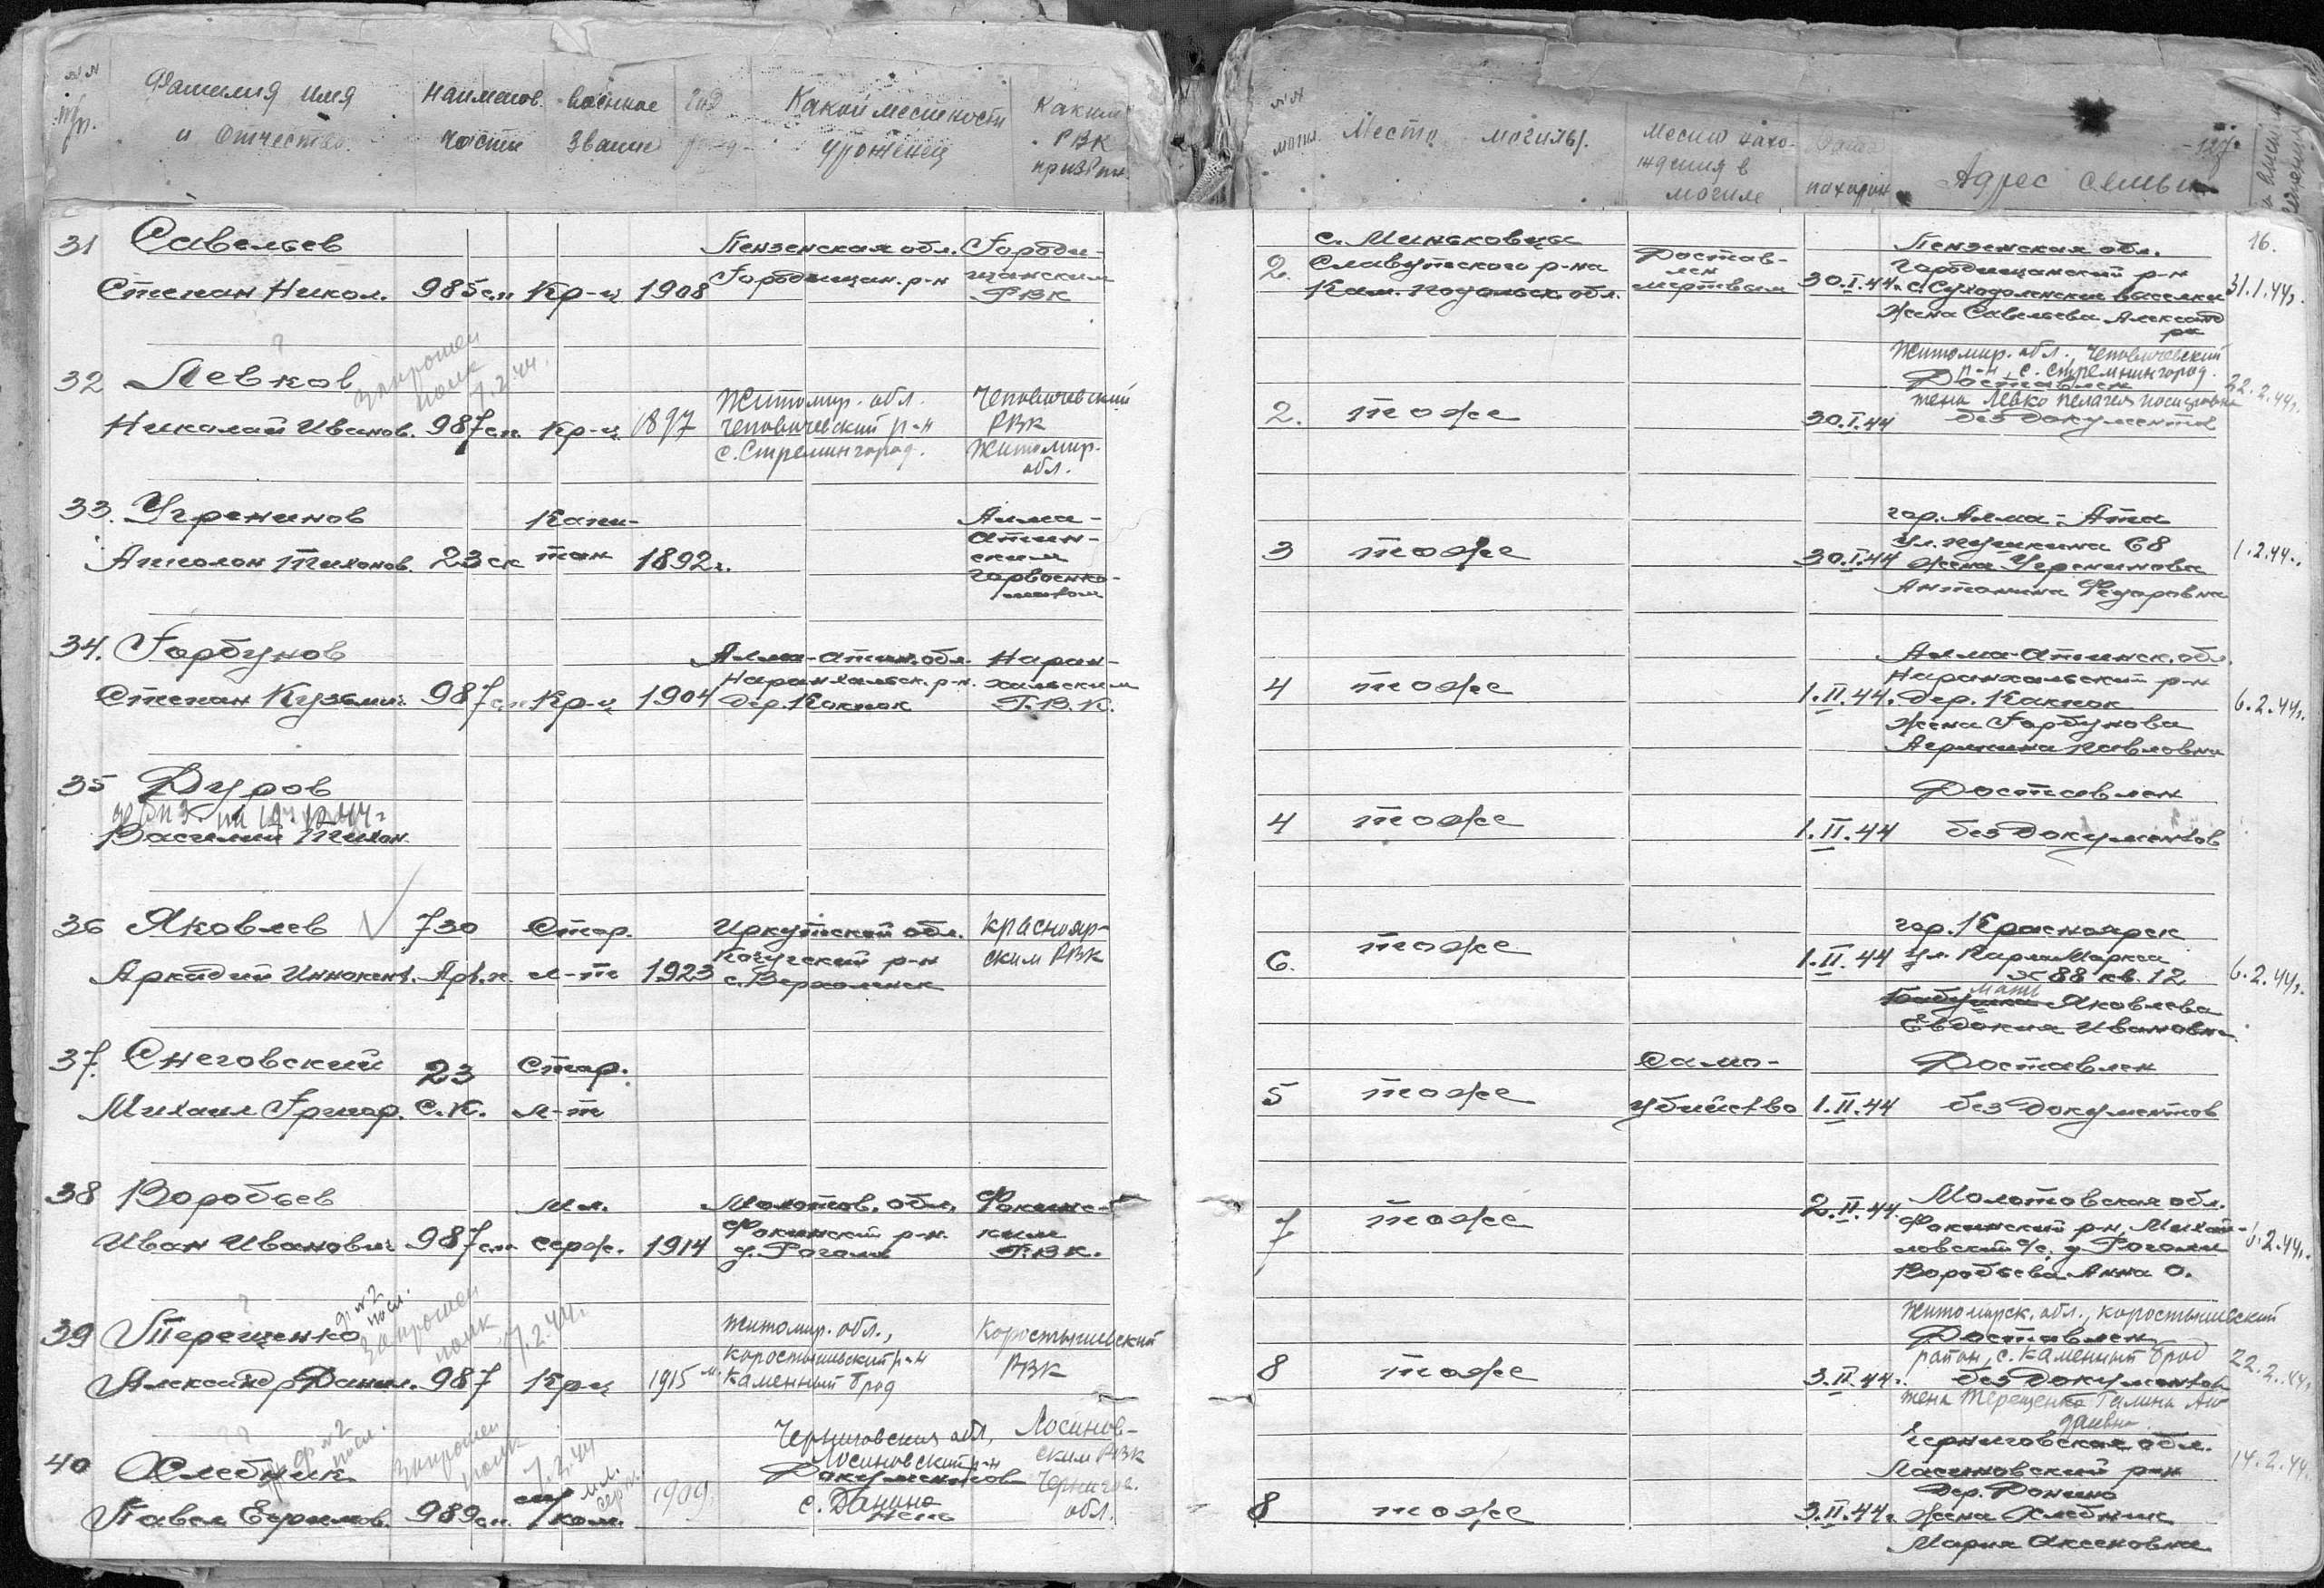 №№ п/п.
Фамилия имя и отчество
Наименов. части
Военное звание
Год рожд.
Какой местности уроженец
Каким РВК призван.
№№ могил.
Место могилы.
Место нахождения в могиле
Дата похорон
Адрес семьи
16.
31 Савельев
Степан Никол. 985 сп Кр-ц 1908
Пензенская обл.
Городищан. р-н
Городи-
щанским
РВК
2. с. Миньковцы
Славутского р-на
Кам. Подольск. обл.
Достав-
лен
мертвым
30.I.44г.
Пензенская обл.
Городищанский р-н
с. Суходоленские выселки
Жена Савельева Александ
ра
31.1.44г.
32 Левков
?
Запрошен
полк
7.2.44.
Николай Иванов. 987 сп. Кр-ц 1897
Житомир. обл.
Чеповичевский р-н
с. Стремингород.
Чеповичевский
РВК
Житомир.
обл.
2. тоже
30.I.44
Житомир. обл., Чеповичевский
р-н, с. Стремнингород.
Доставлен
жена Левко Пелагея
без документов
22.2.44г.
33. Угренинов
Апполон Тихонов. 23 ск
Капи-
тан
1892г.
Алма-
Атин-
ским
горвоенко-
матом
3 тоже
30.I.44
гор. Алма-Ата
ул. Пушкина 68
Жена Угренинова
Антонина Федоровна
1.2.44г.
34. Горбунов
Степан Кузьмич 987 сп Кр-ц 1904
Алма-Атин. обл.
Нарынкальск. р-н.
дер. Какпок
Наран-
кальским
Р.В.К.
4 тоже
1.II.44.
Алма-Атинск. обл.
Наранкальский р-н
дер. Какпок
Жена Горбунова
Агрипина Павловна
6.2.44г.
35 Дуров
Василий Тихон.
4 тоже
1.II.44
Доставлен
без документов
36 Яковлев
730
Арт. п.
Аркадий Иннокент.
Стар.
л-т
1923
Иркутской обл.
Качугский р-н
с. Верхоленск
Краснояр-
ским РВК
6. тоже
1.II.44
гор. Красноярск
ул. Карла Маркса
№ 88 кв. 12
мать
Бабушка Яковлева
Евдокия Ивановна
6.2.44г.
37. Снеговский
Михаил Григор.
23
С.К.
Стар.
л-т
5 тоже
Само-
убийство
1.II.44
Доставлен
без документов
38 Воробьев
Иван Иванович 987 сп
мл.
серж.
1914
Молотов. обл.
Фокинский р-н.
д. Рогали
Фокинс-
ким
Р.В.К.
7 тоже
2.II.44.
Молотовская обл.
Фокинский р-н, Михай-
ловский с/с. д. Рогали
Воробьева Анна О.
6.2.44г.
39 Терещенко
?
ф №2
посл.
Запрошен
полк
7.2.44г
Александр Данил. 987 Кр-ц 1915
Житомир. обл.,
Коростышевский р-н
м. Каменный брод
Коростышевский
РВК
8 тоже
3.II.44г.
Житомирск. обл., Коростышевский
Доставлен
район, с. Каменный брод
без документов
жена Терещенко Галина
22.2.44г.
40 Хлебник
??
ф №2
посл.
Запрошен
полк
7.2.44
Павел Ефимов. 989 сп.
мл.
серж.
ком.
1909.
Черниговская обл,
Лосиновский р-н
Документов
с. Данино
нет
Лосинов-
ским РВК
Чернигов.
обл.
8 тоже
3.II.44г
Черниговская обл.
Ласиновский р-н
Дер. Данино
Жена Хлебник
Мария Аксеновна
14.2.44.